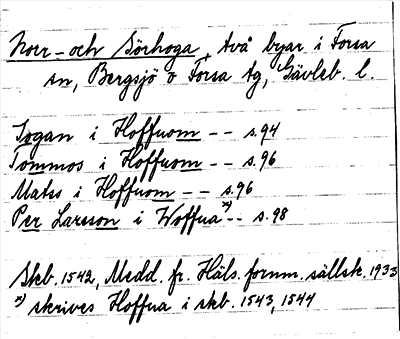 Norr- och Sörhoga, två byar i Forsa
sn, Bergsjö o Forsa tg, Gävleb. l.
Jogan i Hoffuom -- s. 94
Tommos i Hoffuom -- s. 96
Matss i Hoffuom -- s. 96
Per Larsson i Woffua x) -- s. 98
Skb. 1542, Medd. fr. Häls. fornm. sällsk. 1933
x) skrives Hoffua i skb. 1543, 1544